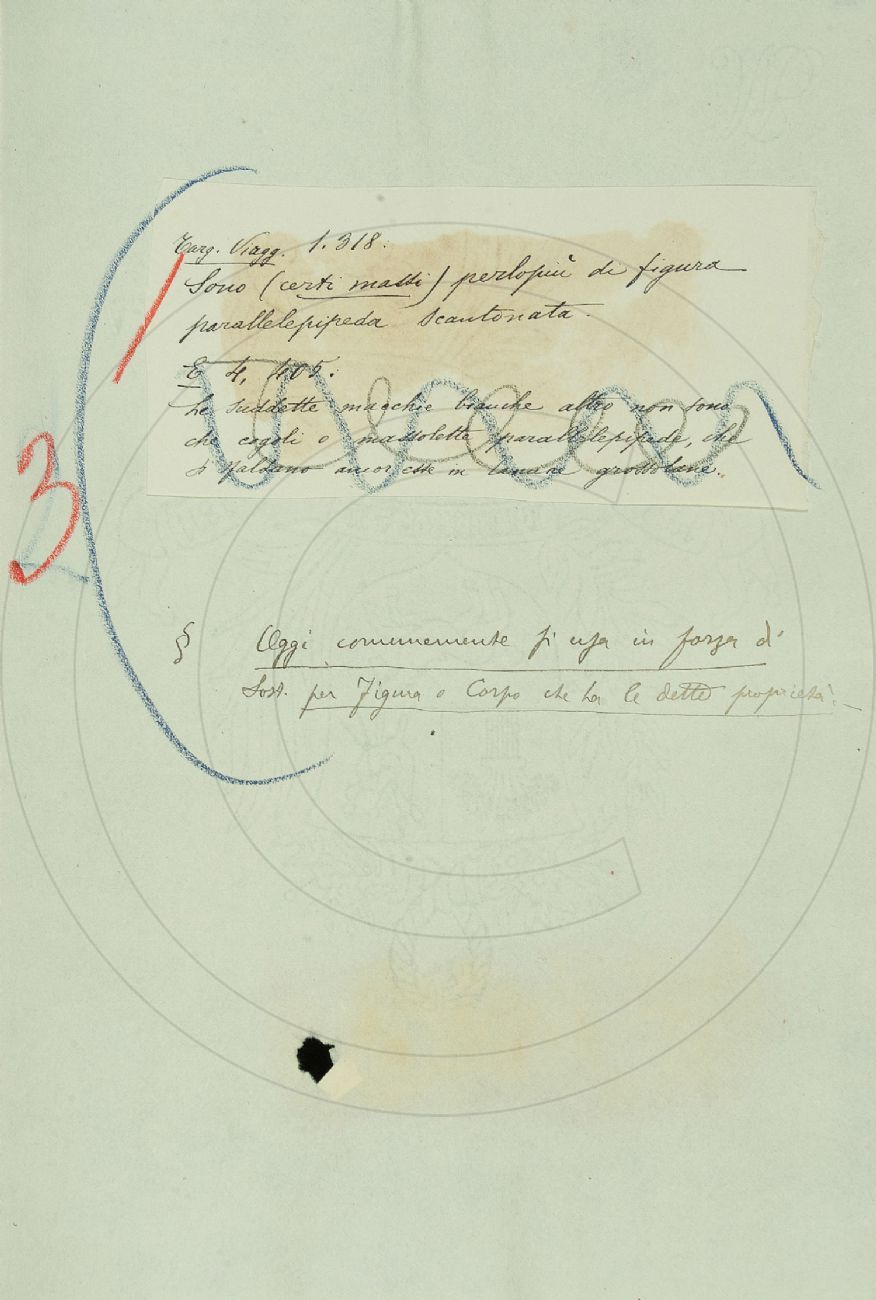 Targ. Viagg. 1. 318.
Sono (certi massi) perlopiù di figura
parallelepipeda scantonata.
E 4, 405.
Le suddette macchie bianche altro non sono
che cogoli o massolette parallelepipede, che
si faldano ancor esse in lamine grossolane.
3
§ Oggi comunemente si usa in forza di
Sost. per Figura o Corpo che ha le dette proprietà.